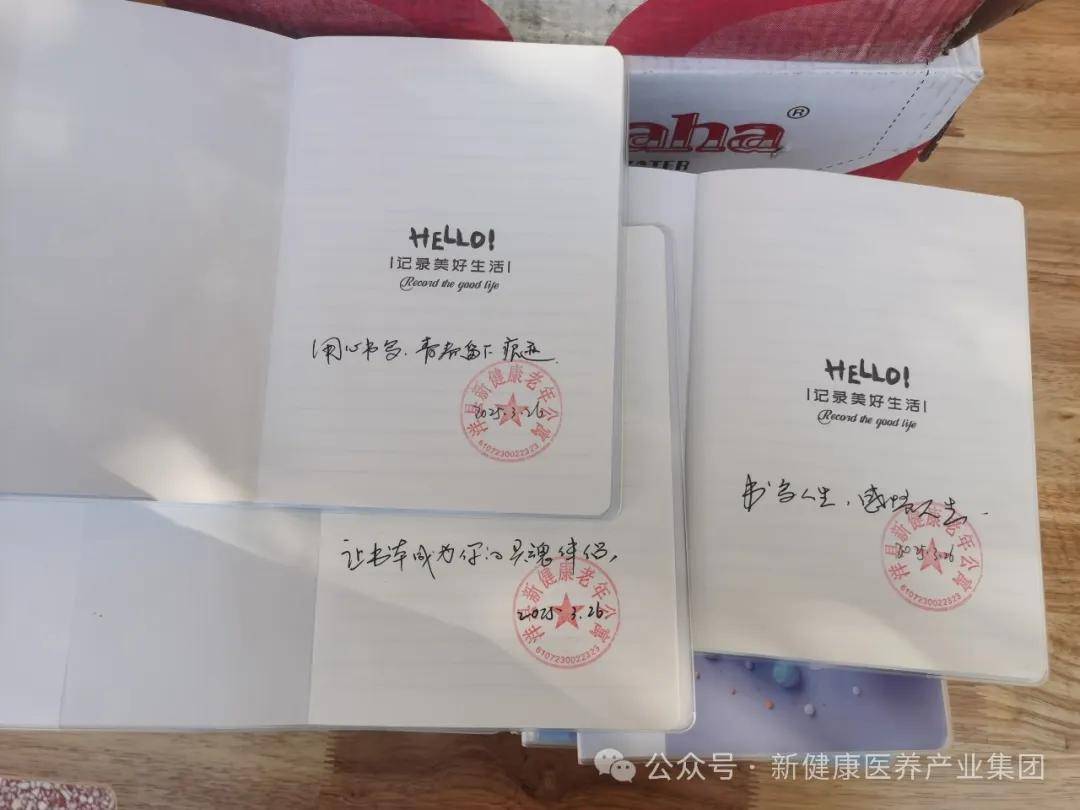 aha®
WATER
HELLO!
记录美好生活
Record the good life
用心书写,青春留下痕迹.
洋县新健康老年公寓
2025.3.26
6107230022323
HELLO!
记录美好生活
Record the good life
书写人生,感悟人生.
洋县新健康老年公寓
2025.3.26
6107230022323
让书本成为你的灵魂伴侣,
洋县新健康老年公寓
2025.3.26
6107230022323
公众号·新健康医养产业集团